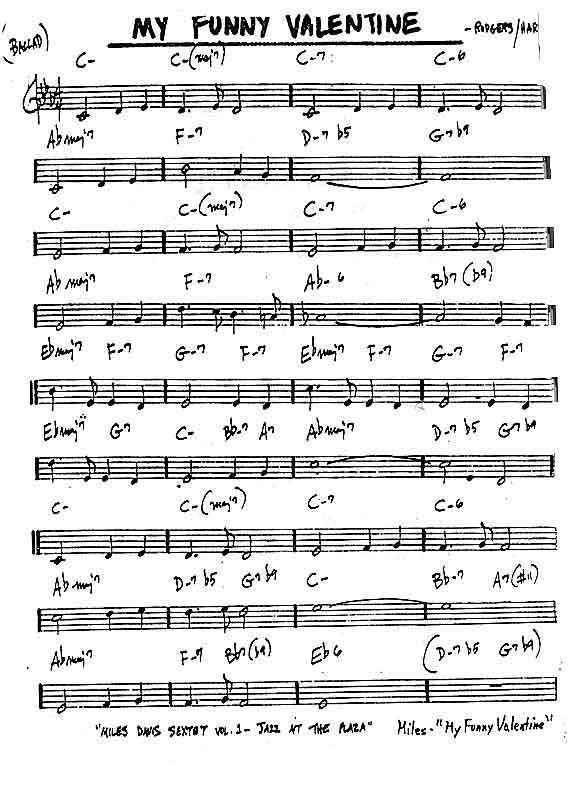 MY FUNNY VALENTINE
(BALLAD) - RODGERS/HAR
C- C-(maj7) C-7 C-6
Abmaj7 F-7 D-7b5 G7b9
C- C-(maj7) C-7 C-6
Abmaj7 F-7 Ab-6 Bb7(b9)
Ebmaj7 F-7 G-7 F-7 Ebmaj7 F-7 G-7 F-7
Ebmaj7 G7 C- Bb-7 A7 Abmaj7 D-7b5 G7b9
C- C-(maj7) C-7 C-6
Abmaj7 D-7b5 G7b9 C- Bb-7 A7(#11)
Abmaj7 F-7 Bb7(b9) Eb6 (D-7b5 G7b9)
"MILES DAVIS SEXTET VOL. 1 - JAZZ AT THE PLAZA" Miles - "My Funny Valentine"